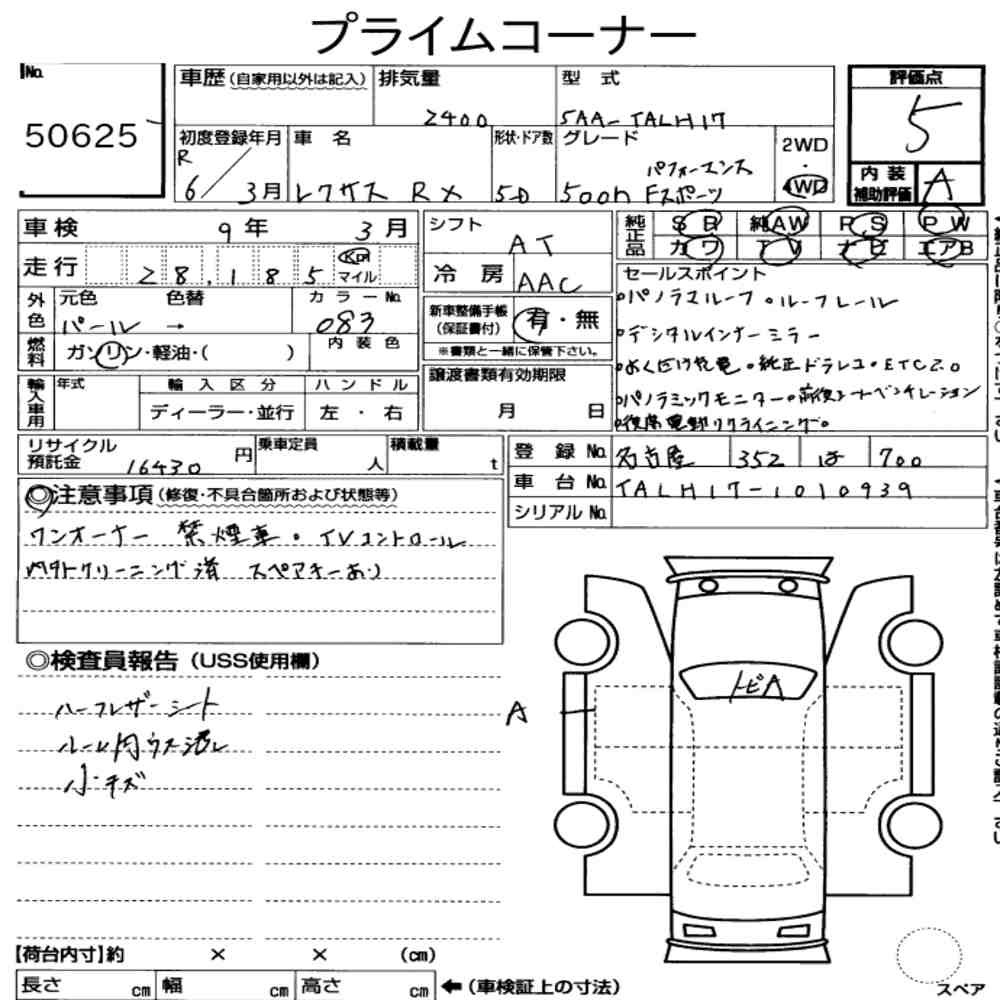 プライムコーナー
No.
50625
車歴(自家用以外は記入)
排気量
2400
型 式
5AA-TALH17
評価点
5
初度登録年月
R
6/3月
車 名
レクサス RX
形状・ドア数
5D
グレード
パフォーマンス
500h Fスポーツ
2WD
・
4WD
内装
補助評価
A
車検 9年 3月
走行 28,185
Km
マイル
シフト
AT
冷房
AAC
純正品
SR 純AW PS PW
カワ TV ナビ エアB
セールスポイント
○パノラマルーフ ○ルーフレール
○デジタルインナーミラー
○おくだけ充電 ○純正ドラレコ ○ETC2.0
○パノラミックモニター○前後シートベンチレーション
○後席電動リクライニング○
外色
元色
色替
カラーNo.
パール → 083
新車整備手帳
(保証書付)
有・無
※書類と一緒に保管下さい。
燃料
ガソリン・軽油・( )
内装色
輸入車用
年式
輸入区分
ハンドル
ディーラー・並行
左 ・ 右
譲渡書類有効期限
月 日
リサイクル
預託金
16430 円
乗車定員
人
積載量
t
登録No.
名古屋 352 は 700
車台No.
TALH17-1010939
シリアルNo.
◎注意事項(修復・不具合箇所および状態等)
ワンオーナー 禁煙車 ・ TVコントロール
内外クリーニング済 スペアキーあり
◎検査員報告(USS使用欄)
ハーフレザーシート
ルーム内ウス汚レ
小キズ
トビA
A
【荷台内寸】約 × × (cm)
長さ cm 幅 cm 高さ cm
←(車検証上の寸法)
スペア